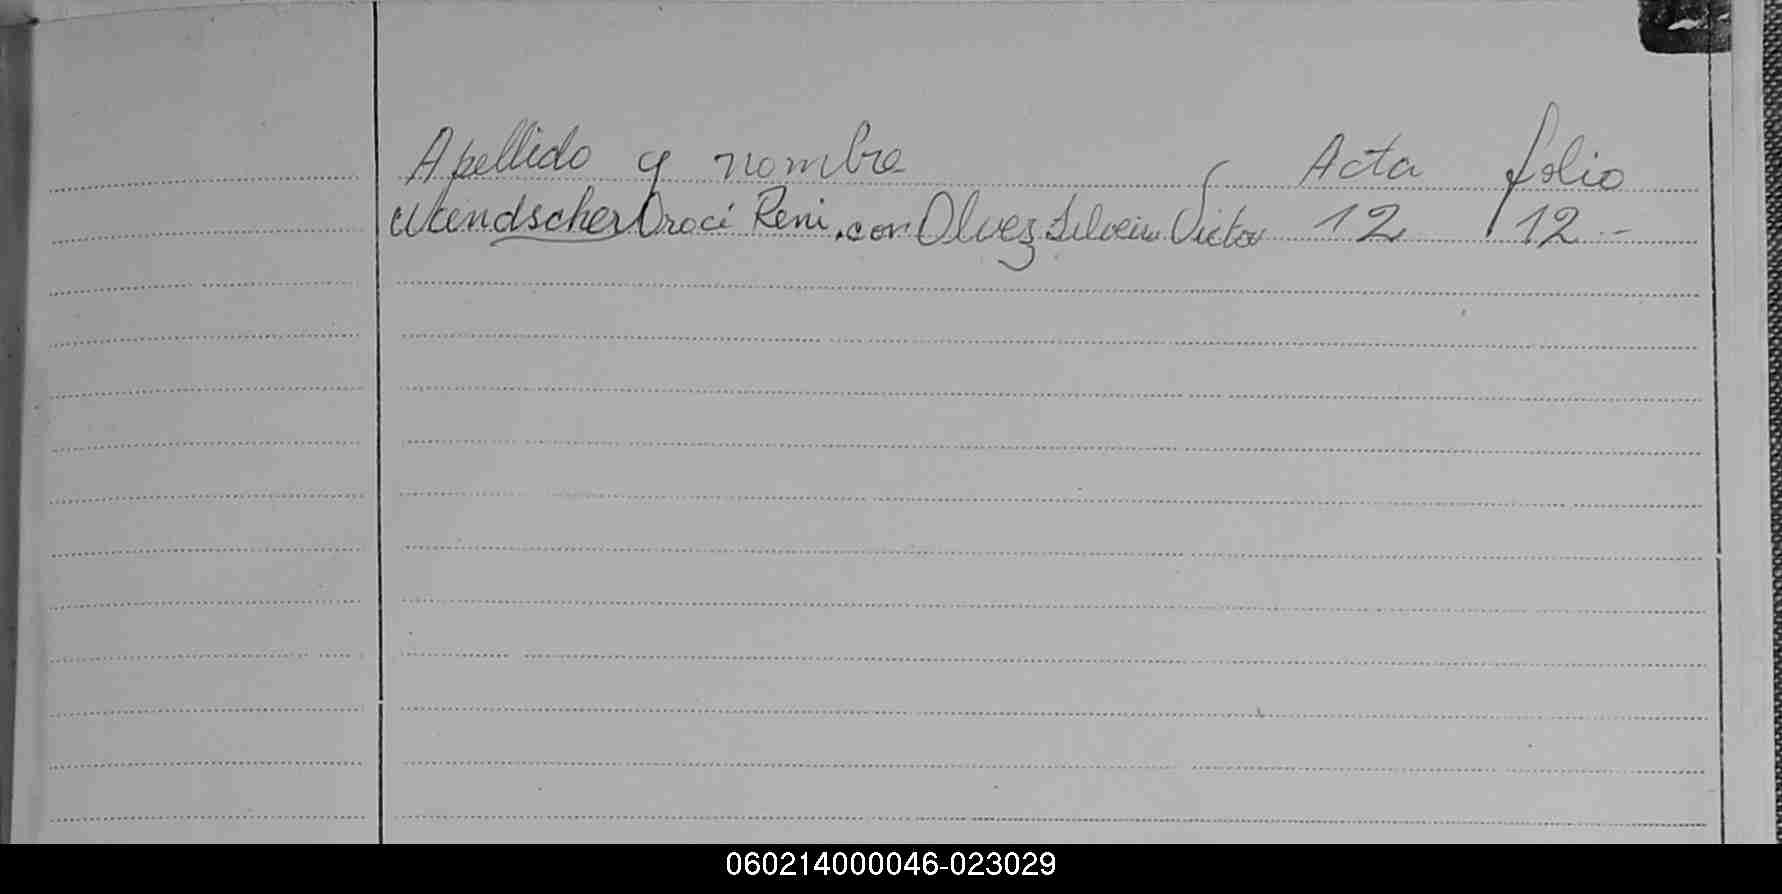 Apellido y nombre Acta folio
Wendscher Oraci Reni. con Olvez Silveira Victor 12 12 -
060214000046-023029